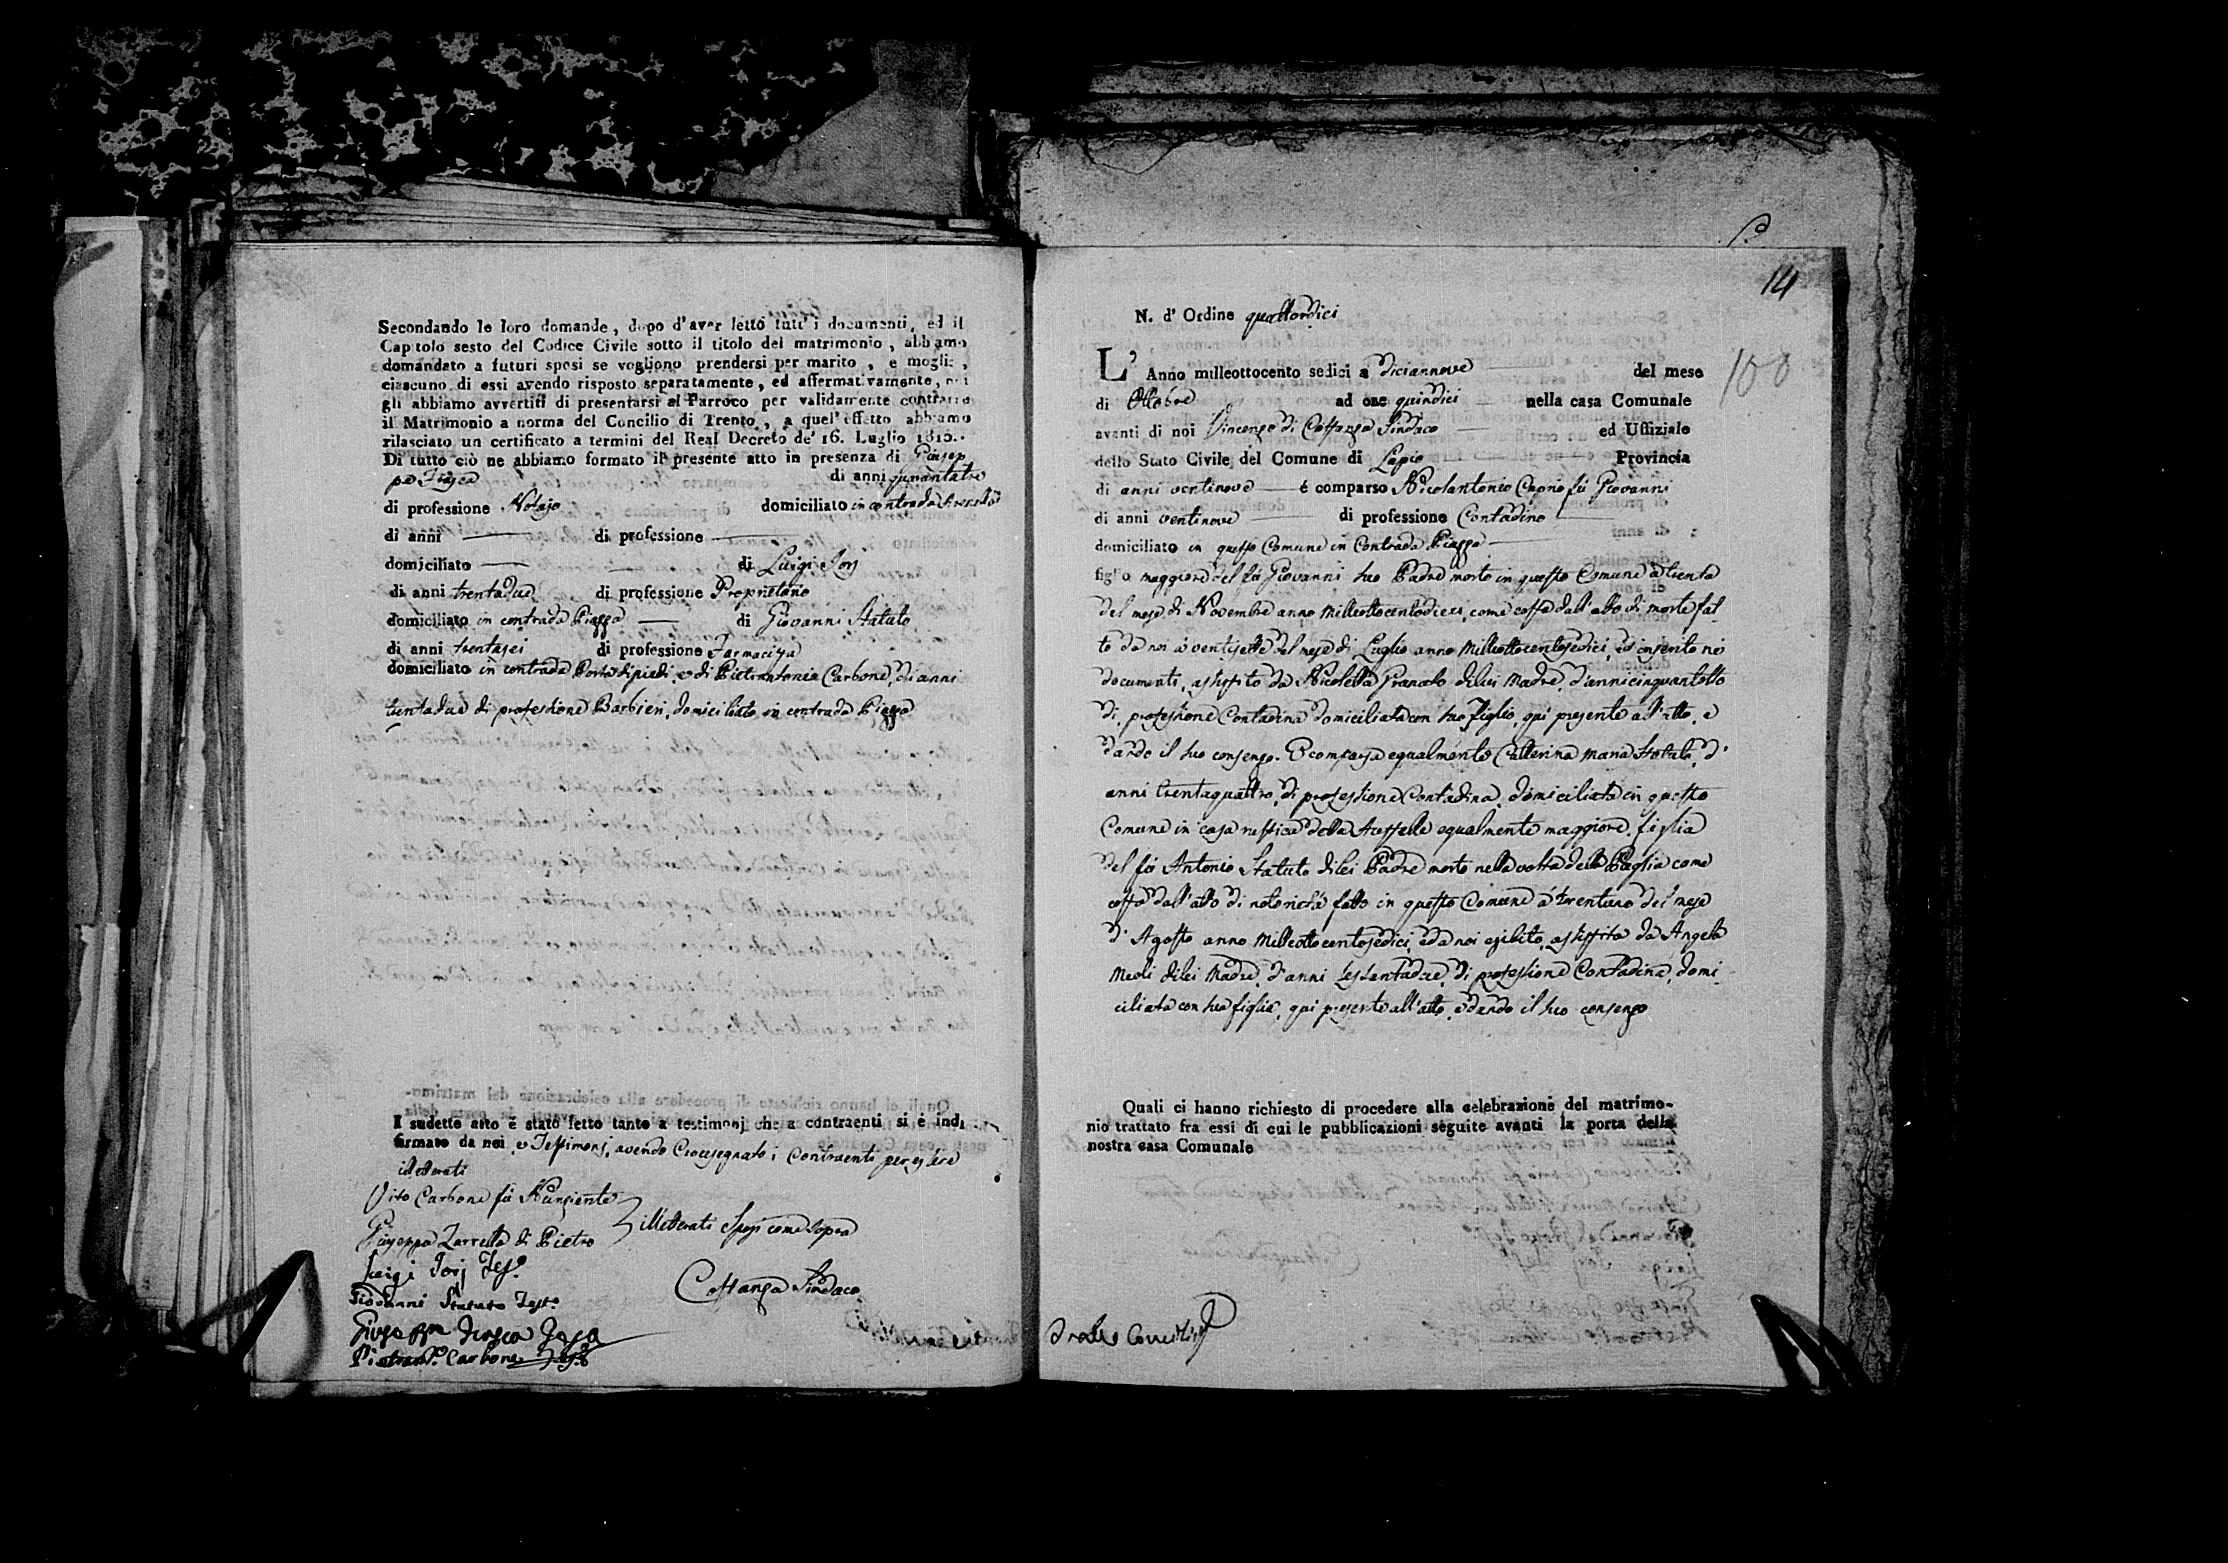 Secondando le loro domande, dopo d'aver letto tutt' i documenti, ed il
Capitolo sesto del Codice Civile sotto il titolo del matrimonio, abbiamo
domandato a futuri sposi se vogliono prendersi per marito, e moglie,
ciascuno di essi avendo risposto separatamente, ed affermativamente, noi
gli abbiamo avvertiti di presentarsi al Parroco per validamente contrarre
il Matrimonio a norma del Concilio di Trento, a quel' effetto abbiamo
rilasciato un certificato a termini del Real Decreto de' 16. Luglio 1815.
Di tutto ciò ne abbiamo formato il presente atto in presenza di Giusep
pe Frasca di anni quarantatre
di professione Notajo domiciliato in contrada
di anni di professione
domiciliato di Luigi Iorj
di anni trentadue di professione Proprietario
domiciliato in contrada Piazza di Giovanni Statuto
di anni trentasei di professione Farmacista
domiciliato in contrada Porta di piedi, e di Pietrantonio Carbone, di anni
trentadue di professione Barbieri, domiciliato in contrada Piazza
I sudetto atto è stato letto tanto a testimonj che a contraenti si è indi
firmato da noi, e Testimonj, avendo Crocesegnato i Contraenti per essere
illetterati
Vito Carbone fù Nunziante
Giuseppa Zarrella di Pietro illetterati Sposi come sopra
Luigi Iorj Tes.º
Giovanni Statuto Test.º
Costanza Sindaco
Giuseppe Frasca
Pietrant.º Carbone
14
N. d' Ordine quattordici
L' Anno milleottocento sedici a diciannove del mese
100
di Ottobre ad ore quindici nella casa Comunale
avanti di noi Vincenzo di Costanza Sindaco ed Uffiziale
dello Stato Civile del Comune di Lapio Provincia
di anni ventinove è comparso Nicolantonio Caprio fù Giovanni
di anni ventinove di professione Contadino
domiciliato in questo Comune in Contrada Piazza
figlio maggiore del fù Giovanni suo Padre morto in questo Comune a trenta
del mese di Novembre anno Milleottocentodieci, come costa dall'atto di morte fat
to da noi a ventisette del mese di Luglio anno Milleottocentosedici, ed inserito ne'
documenti, assistito da Nicoletta Granato di lui Madre, d'anni cinquantotto
di professione Contadina domiciliata con suo figlio, qui presente all'atto, e
dando il suo consenso. E comparsa egualmente Catterina Maria Statuto, d'
anni trentaquattro, di professione Contadina, domiciliata in questo
Comune in casa rustica della egualmente maggiore, figlia
del fù Antonio Statuto di lei Padre morto nella volta della Paglia come
costa dall'atto di notorietà fatto in questo Comune a trentuno del mese
d' Agosto anno Milleottocentosedici, e da noi esibito, assistita da Angela
Meoli di lei Madre, d'anni sessantadue, di professione Contadina, domi
ciliata con sua figlia, qui presente all'atto, e dando il suo consenso
Quali ci hanno richiesto di procedere alla celebrazione del matrimo-
nio trattato fra essi di cui le pubblicazioni seguite avanti la porta della
nostra casa Comunale